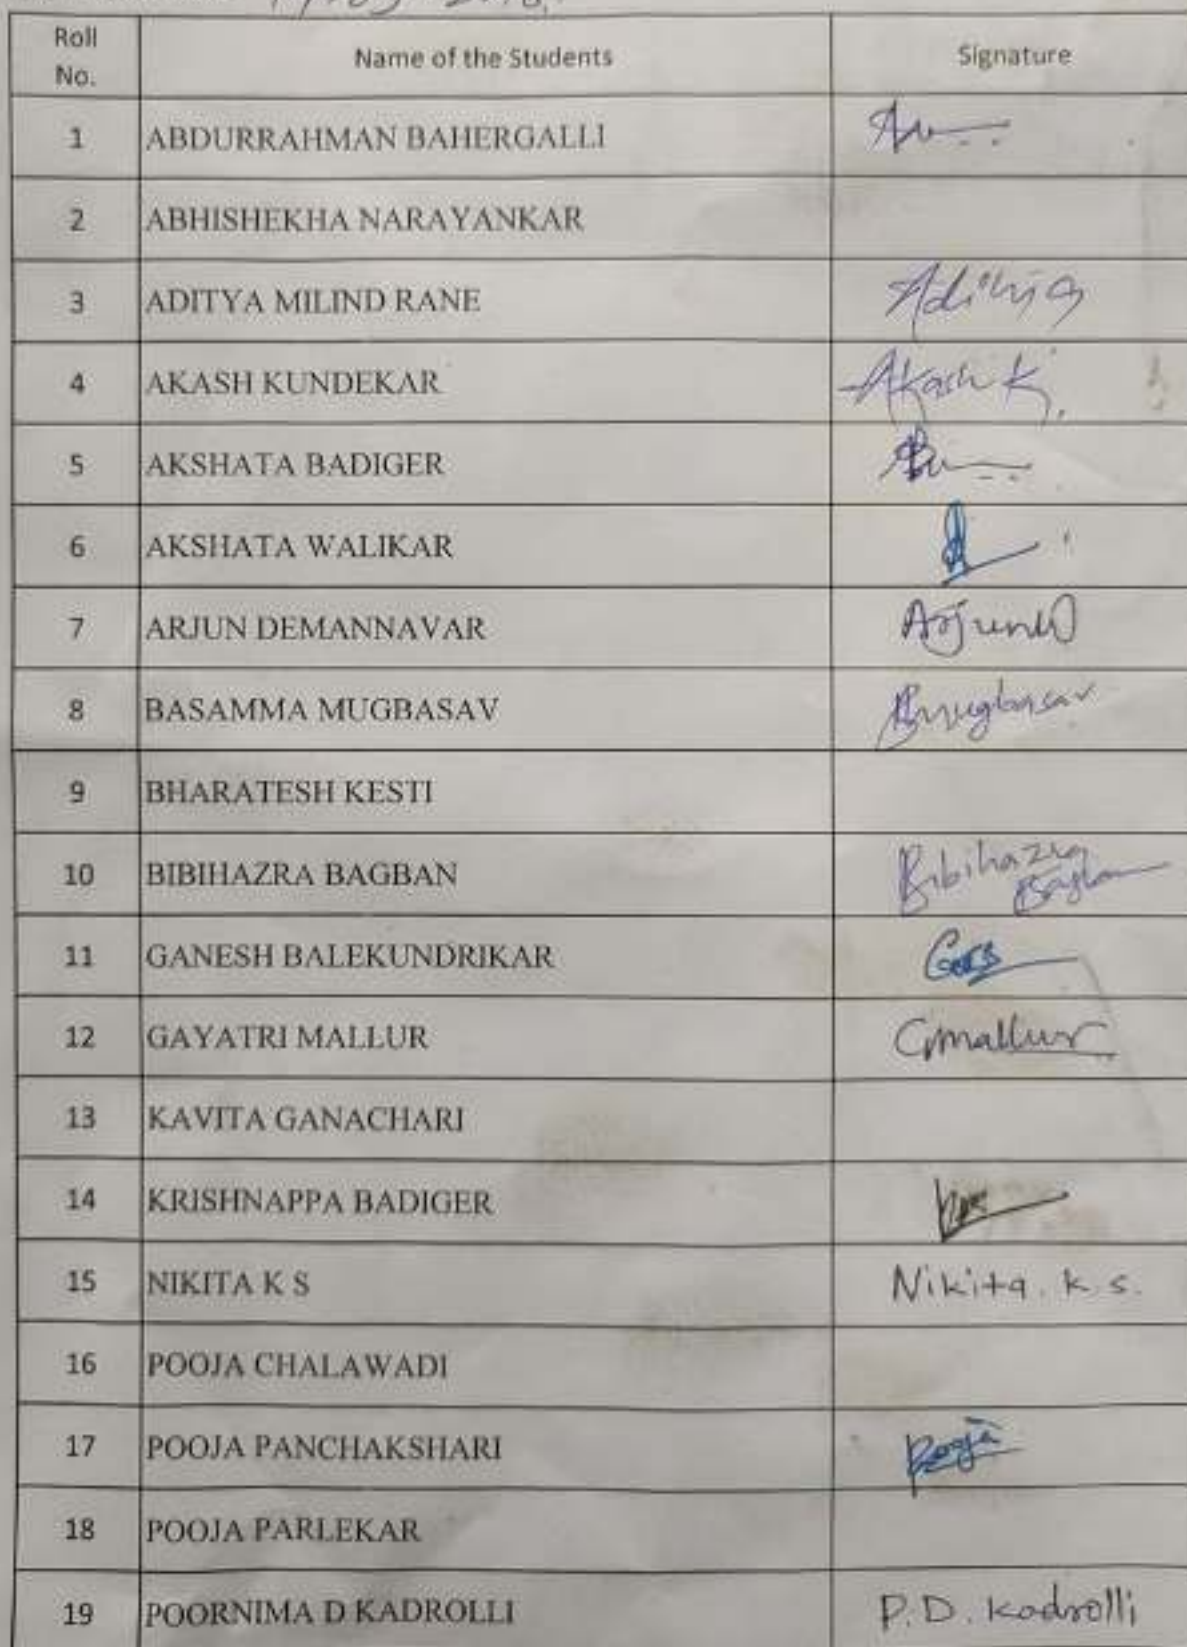 Roll No. Name of the Students Signature
1 ABDURRAHMAN BAHERGALLI
2 ABHISHEKHA NARAYANKAR
3 ADITYA MILIND RANE Aditya
4 AKASH KUNDEKAR Akash K.
5 AKSHATA BADIGER
6 AKSHATA WALIKAR
7 ARJUN DEMANNAVAR
8 BASAMMA MUGBASAV Bmugbasav
9 BHARATESH KESTI
10 BIBIHAZRA BAGBAN Bibihazra Bagban
11 GANESH BALEKUNDRIKAR
12 GAYATRI MALLUR Gmallur
13 KAVITA GANACHARI
14 KRISHNAPPA BADIGER
15 NIKITA K S Nikita. k. s.
16 POOJA CHALAWADI
17 POOJA PANCHAKSHARI Pooja
18 POOJA PARLEKAR
19 POORNIMA D KADROLLI P.D. Kadrolli